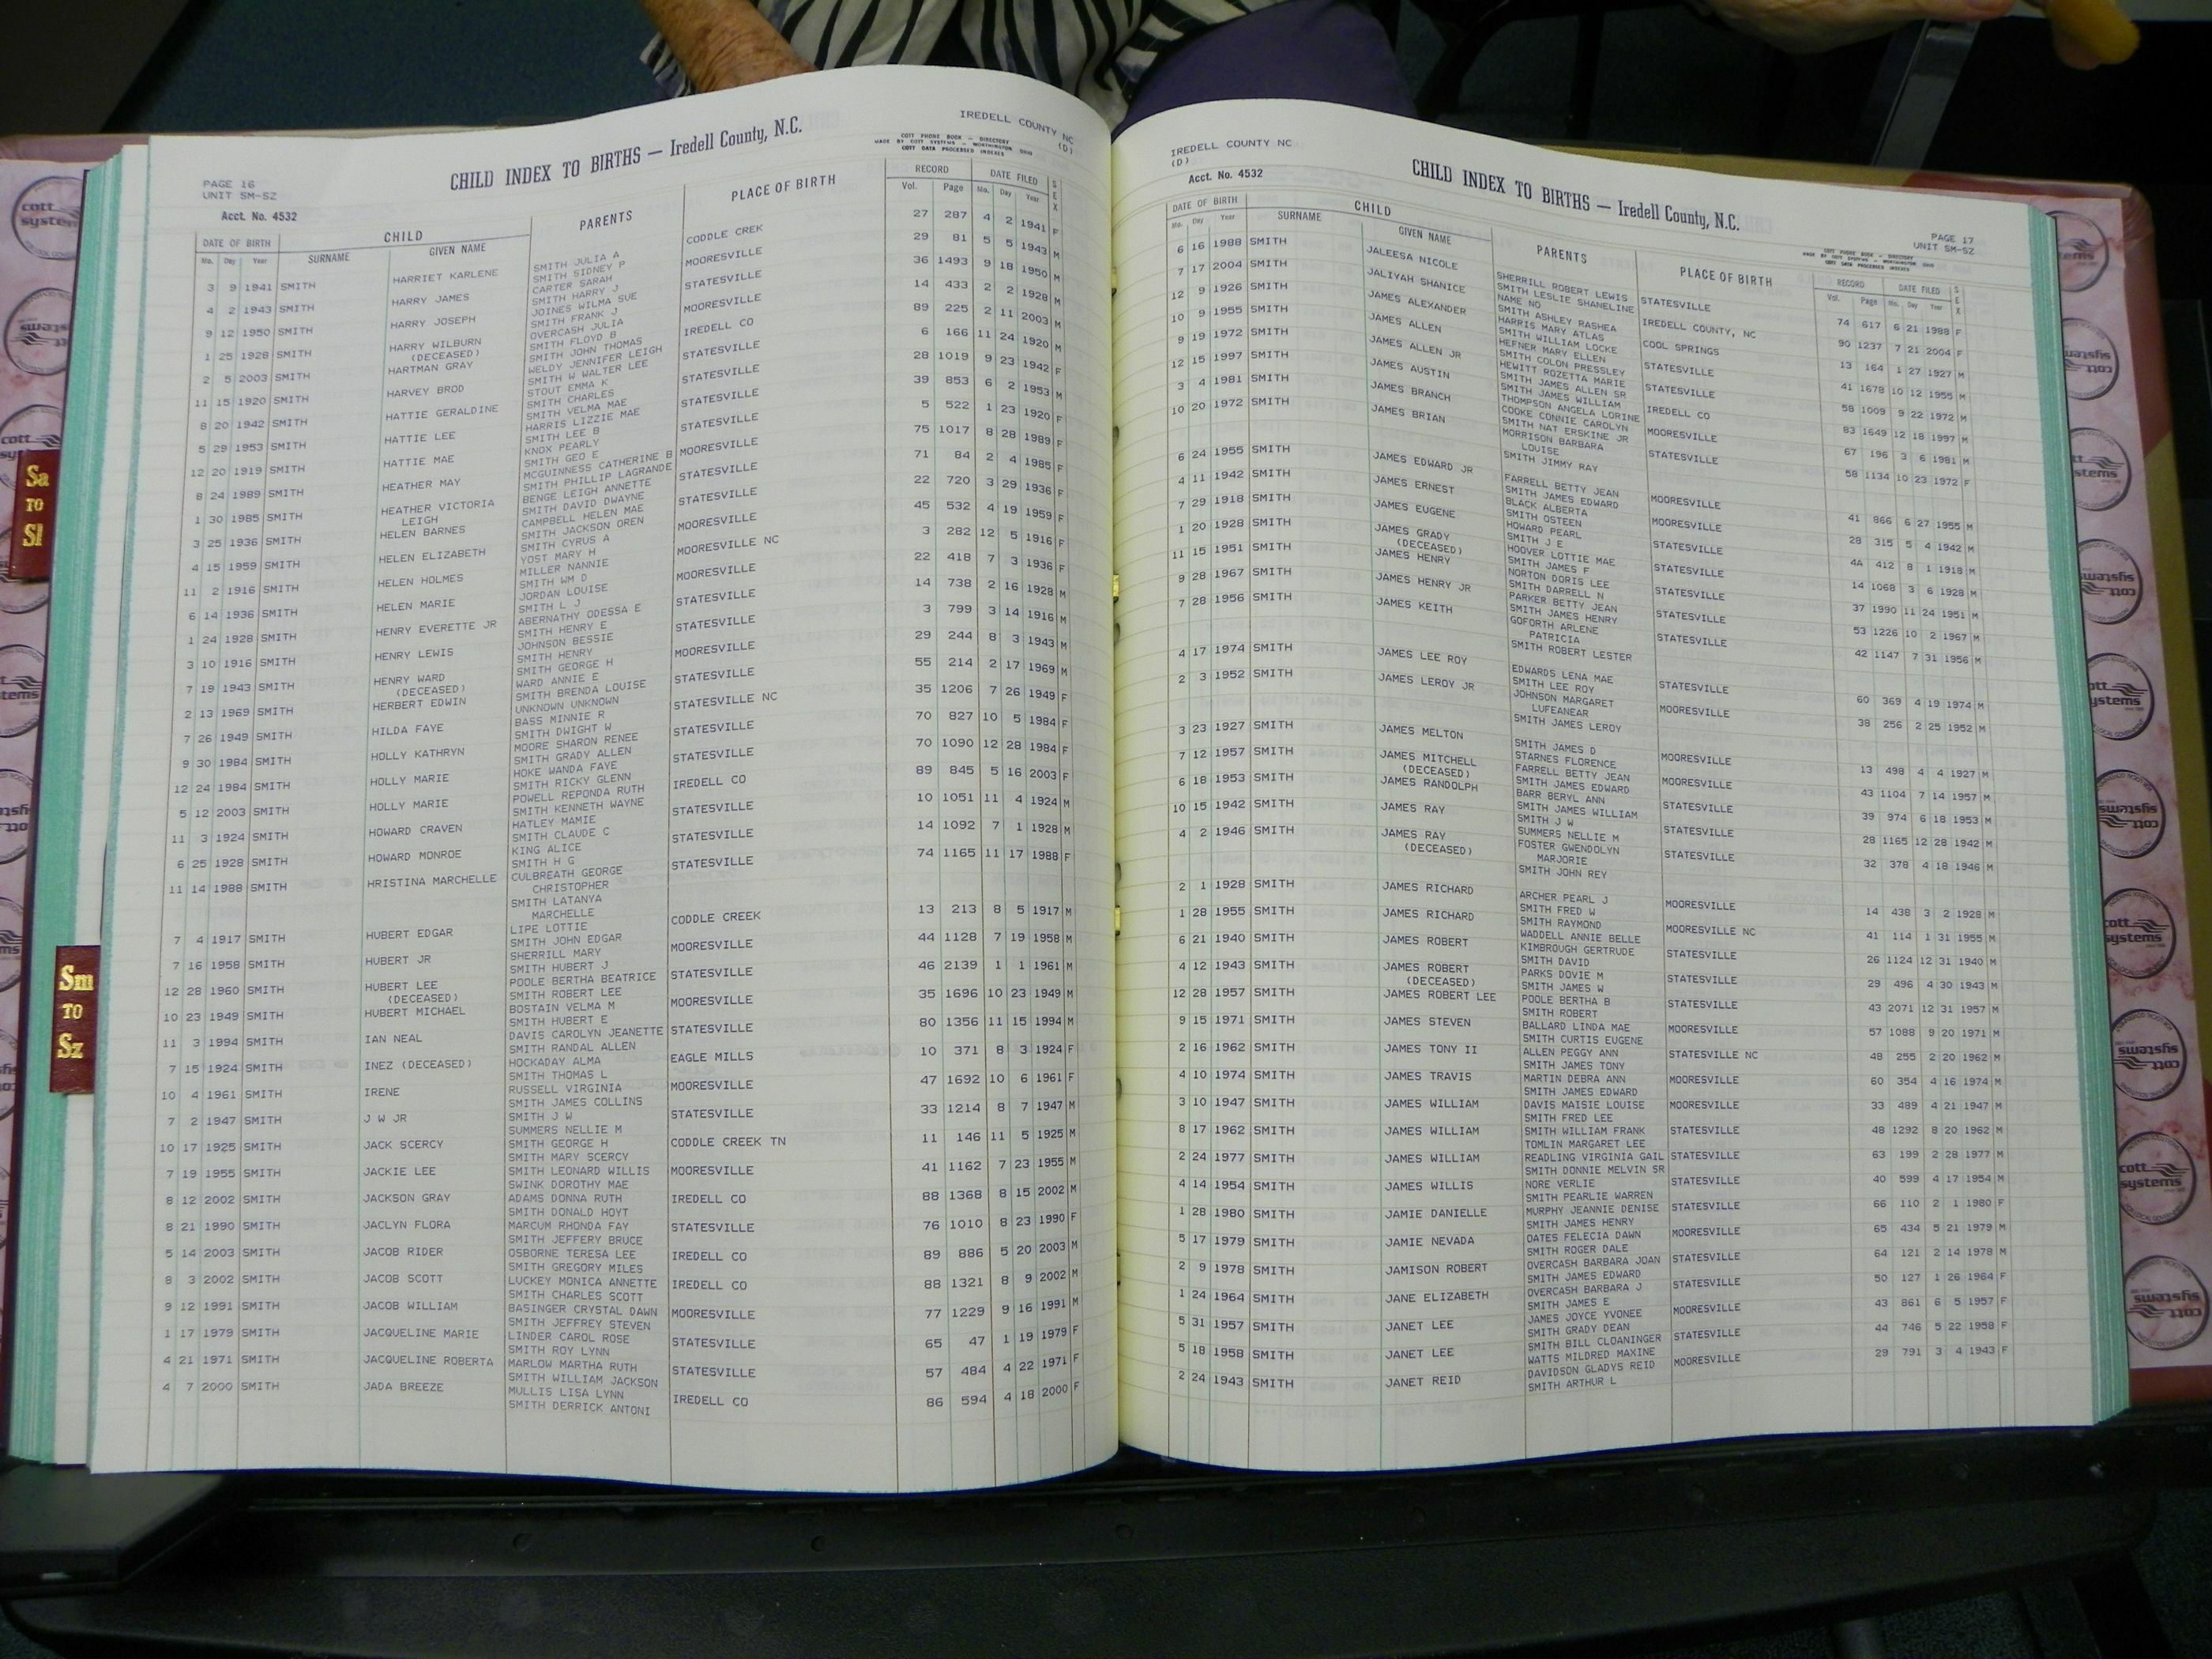 IREDELL COUNTY NC
(D)
CHILD INDEX TO BIRTHS — Iredell County, N.C.
COTT PHONE BOOK — DIRECTORY
MADE BY COTT SYSTEMS — WORTHINGTON OHIO
COTT DATA PROCESSED INDEXES
PAGE 16
UNIT SM-SZ
Acct. No. 4532
DATE OF BIRTH CHILD PARENTS PLACE OF BIRTH RECORD DATE FILED SEX
Mo. Day Year SURNAME GIVEN NAME Vol. Page Mo. Day Year
3 9 1941 SMITH HARRIET KARLENE SMITH JULIA A CODDLE CREK 27 287 4 2 1941 F
SMITH SIDNEY P
4 2 1943 SMITH HARRY JAMES CARTER SARAH MOORESVILLE 29 81 5 5 1943 M
SMITH HARRY J
9 12 1950 SMITH HARRY JOSEPH JOINES WILMA SUE STATESVILLE 36 1493 9 18 1950 M
SMITH FRANK J
1 25 1928 SMITH HARRY WILBURN OVERCASH JULIA MOORESVILLE 14 433 2 2 1928 M
(DECEASED) SMITH FLOYD B
2 5 2003 SMITH HARTMAN GRAY SMITH JOHN THOMAS IREDELL CO 89 225 2 11 2003 M
WELDY JENNIFER LEIGH
11 15 1920 SMITH HARVEY BROD SMITH W WALTER LEE STATESVILLE 6 166 11 24 1920 M
STOUT EMMA K
8 20 1942 SMITH HATTIE GERALDINE SMITH CHARLES STATESVILLE 28 1019 9 23 1942 F
SMITH VELMA MAE
5 29 1953 SMITH HATTIE LEE HARRIS LIZZIE MAE STATESVILLE 39 853 6 2 1953 M
SMITH LEE B
12 20 1919 SMITH HATTIE MAE KNOX PEARLY STATESVILLE 5 522 1 23 1920 F
SMITH GEO E
8 24 1989 SMITH HEATHER MAY MCGUINNESS CATHERINE B MOORESVILLE 75 1017 8 28 1989 F
SMITH PHILLIP LAGRANDE
1 30 1985 SMITH HEATHER VICTORIA BENGE LEIGH ANNETTE STATESVILLE 71 84 2 4 1985 F
LEIGH SMITH DAVID DWAYNE
3 25 1936 SMITH HELEN BARNES CAMPBELL HELEN MAE STATESVILLE 22 720 3 29 1936 F
SMITH JACKSON OREN
4 15 1959 SMITH HELEN ELIZABETH SMITH CYRUS A MOORESVILLE 45 532 4 19 1959 F
YOST MARY H
11 2 1916 SMITH HELEN HOLMES MILLER NANNIE MOORESVILLE NC 3 282 12 5 1916 F
SMITH WM D
6 14 1936 SMITH HELEN MARIE JORDAN LOUISE MOORESVILLE 22 418 7 3 1936 F
SMITH L J
1 24 1928 SMITH HENRY EVERETTE JR ABERNATHY ODESSA E STATESVILLE 14 738 2 16 1928 M
SMITH HENRY E
3 10 1916 SMITH HENRY LEWIS JOHNSON BESSIE STATESVILLE 3 799 3 14 1916 M
SMITH HENRY
7 19 1943 SMITH HENRY WARD SMITH GEORGE H MOORESVILLE 29 244 8 3 1943 M
(DECEASED) WARD ANNIE E
2 13 1969 SMITH HERBERT EDWIN SMITH BRENDA LOUISE STATESVILLE 55 214 2 17 1969 M
UNKNOWN UNKNOWN
7 26 1949 SMITH HILDA FAYE BASS MINNIE R STATESVILLE NC 35 1206 7 26 1949 F
SMITH DWIGHT W
9 30 1984 SMITH HOLLY KATHRYN MOORE SHARON RENEE STATESVILLE 70 827 10 5 1984 F
SMITH GRADY ALLEN
12 24 1984 SMITH HOLLY MARIE HOKE WANDA FAYE STATESVILLE 70 1090 12 28 1984 F
SMITH RICKY GLENN
5 12 2003 SMITH HOLLY MARIE POWELL REPONDA RUTH IREDELL CO 89 845 5 16 2003 F
SMITH KENNETH WAYNE
11 3 1924 SMITH HOWARD CRAVEN HATLEY MAMIE STATESVILLE 10 1051 11 4 1924 M
SMITH CLAUDE C
6 25 1928 SMITH HOWARD MONROE KING ALICE STATESVILLE 14 1092 7 1 1928 M
SMITH H G
11 14 1988 SMITH HRISTINA MARCHELLE CULBREATH GEORGE STATESVILLE 74 1165 11 17 1988 F
CHRISTOPHER
SMITH LATANYA
MARCHELLE
7 4 1917 SMITH HUBERT EDGAR LIPE LOTTIE CODDLE CREEK 13 213 8 5 1917 M
SMITH JOHN EDGAR
7 16 1958 SMITH HUBERT JR SHERRILL MARY MOORESVILLE 44 1128 7 19 1958 M
SMITH HUBERT J
12 28 1960 SMITH HUBERT LEE POOLE BERTHA BEATRICE STATESVILLE 46 2139 1 1 1961 M
(DECEASED) SMITH ROBERT LEE
10 23 1949 SMITH HUBERT MICHAEL BOSTAIN VELMA M MOORESVILLE 35 1696 10 23 1949 M
SMITH HUBERT E
11 3 1994 SMITH IAN NEAL DAVIS CAROLYN JEANETTE STATESVILLE 80 1356 11 15 1994 M
SMITH RANDAL ALLEN
7 15 1924 SMITH INEZ (DECEASED) HOCKADAY ALMA EAGLE MILLS 10 371 8 3 1924 F
SMITH THOMAS L
10 4 1961 SMITH IRENE RUSSELL VIRGINIA MOORESVILLE 47 1692 10 6 1961 F
SMITH JAMES COLLINS
7 2 1947 SMITH J W JR SMITH J W STATESVILLE 33 1214 8 7 1947 M
SUMMERS NELLIE M
10 17 1925 SMITH JACK SCERCY SMITH GEORGE H CODDLE CREEK TN 11 146 11 5 1925 M
SMITH MARY SCERCY
7 19 1955 SMITH JACKIE LEE SMITH LEONARD WILLIS MOORESVILLE 41 1162 7 23 1955 M
SWINK DOROTHY MAE
8 12 2002 SMITH JACKSON GRAY ADAMS DONNA RUTH IREDELL CO 88 1368 8 15 2002 M
SMITH DONALD HOYT
8 21 1990 SMITH JACLYN FLORA MARCUM RHONDA FAY STATESVILLE 76 1010 8 23 1990 F
SMITH JEFFERY BRUCE
5 14 2003 SMITH JACOB RIDER OSBORNE TERESA LEE IREDELL CO 89 886 5 20 2003 M
SMITH GREGORY MILES
8 3 2002 SMITH JACOB SCOTT LUCKEY MONICA ANNETTE IREDELL CO 88 1321 8 9 2002 M
SMITH CHARLES SCOTT
9 12 1991 SMITH JACOB WILLIAM BASINGER CRYSTAL DAWN MOORESVILLE 77 1229 9 16 1991 M
SMITH JEFFREY STEVEN
1 17 1979 SMITH JACQUELINE MARIE LINDER CAROL ROSE STATESVILLE 65 47 1 19 1979 F
SMITH ROY LYNN
4 21 1971 SMITH JACQUELINE ROBERTA MARLOW MARTHA RUTH STATESVILLE 57 484 4 22 1971 F
SMITH WILLIAM JACKSON
4 7 2000 SMITH JADA BREEZE MULLIS LISA LYNN IREDELL CO 86 594 4 18 2000 F
SMITH DERRICK ANTONI
Sa
TO
Sl
Sm
TO
Sz
IREDELL COUNTY NC
(D)
Acct. No. 4532
CHILD INDEX TO BIRTHS — Iredell County, N.C.
PAGE 17
UNIT SM-SZ
COTT PHONE BOOK — DIRECTORY
MADE BY COTT SYSTEMS — WORTHINGTON OHIO
COTT DATA PROCESSED INDEXES
DATE OF BIRTH CHILD PARENTS PLACE OF BIRTH RECORD DATE FILED SEX
Mo. Day Year SURNAME GIVEN NAME Vol. Page Mo. Day Year
6 16 1988 SMITH JALEESA NICOLE SHERRILL ROBERT LEWIS STATESVILLE 74 617 6 21 1988 F
SMITH LESLIE SHANELINE
7 17 2004 SMITH JALIYAH SHANICE NAME NO IREDELL COUNTY, NC 90 1237 7 21 2004 F
SMITH ASHLEY RASHEA
12 9 1926 SMITH JAMES ALEXANDER HARRIS MARY ATLAS COOL SPRINGS 13 164 1 27 1927 M
SMITH WILLIAM LOCKE
10 9 1955 SMITH JAMES ALLEN HEFNER MARY ELLEN STATESVILLE 41 1678 10 12 1955 M
SMITH COLON PRESSLEY
9 19 1972 SMITH JAMES ALLEN JR HEWITT ROZETTA MARIE IREDELL CO 58 1009 9 22 1972 M
SMITH JAMES ALLEN SR
12 15 1997 SMITH JAMES AUSTIN SMITH JAMES WILLIAM MOORESVILLE 83 1649 12 18 1997 M
THOMPSON ANGELA LORINE
3 4 1981 SMITH JAMES BRANCH COOKE CONNIE CAROLYN STATESVILLE 67 196 3 6 1981 M
SMITH NAT ERSKINE JR
10 20 1972 SMITH JAMES BRIAN MORRISON BARBARA 58 1134 10 23 1972 F
LOUISE
SMITH JIMMY RAY
6 24 1955 SMITH JAMES EDWARD JR FARRELL BETTY JEAN MOORESVILLE 41 866 6 27 1955 M
SMITH JAMES EDWARD
4 11 1942 SMITH JAMES ERNEST BLACK ALBERTA MOORESVILLE 28 315 5 4 1942 M
SMITH OSTEEN
7 29 1918 SMITH JAMES EUGENE HOWARD PEARL STATESVILLE 4A 412 8 1 1918 M
SMITH J E
1 20 1928 SMITH JAMES GRADY HOOVER LOTTIE MAE STATESVILLE 14 1068 3 6 1928 M
(DECEASED) SMITH JAMES F
11 15 1951 SMITH JAMES HENRY NORTON DORIS LEE STATESVILLE 37 1990 11 24 1951 M
SMITH DARRELL N
9 28 1967 SMITH JAMES HENRY JR PARKER BETTY JEAN STATESVILLE 53 1226 10 2 1967 M
SMITH JAMES HENRY
7 28 1956 SMITH JAMES KEITH GOFORTH ARLENE 42 1147 7 31 1956 M
PATRICIA
SMITH ROBERT LESTER
4 17 1974 SMITH JAMES LEE ROY EDWARDS LENA MAE STATESVILLE 60 369 4 19 1974 M
SMITH LEE ROY
2 3 1952 SMITH JAMES LEROY JR JOHNSON MARGARET MOORESVILLE 38 256 2 25 1952 M
LUFEANEAR
SMITH JAMES LEROY
3 23 1927 SMITH JAMES MELTON SMITH JAMES D MOORESVILLE 13 498 4 4 1927 M
STARNES FLORENCE
7 12 1957 SMITH JAMES MITCHELL FARRELL BETTY JEAN MOORESVILLE 43 1104 7 14 1957 M
(DECEASED) SMITH JAMES EDWARD
6 18 1953 SMITH JAMES RANDOLPH BARR BERYL ANN STATESVILLE 39 974 6 18 1953 M
SMITH JAMES WILLIAM
10 15 1942 SMITH JAMES RAY SMITH J W STATESVILLE 28 1165 12 28 1942 M
SUMMERS NELLIE M
4 2 1946 SMITH JAMES RAY FOSTER GWENDOLYN STATESVILLE 32 378 4 18 1946 M
(DECEASED) MARJORIE
SMITH JOHN REY
2 1 1928 SMITH JAMES RICHARD ARCHER PEARL J MOORESVILLE 14 438 3 2 1928 M
SMITH FRED W
1 28 1955 SMITH JAMES RICHARD SMITH RAYMOND MOORESVILLE NC 41 114 1 31 1955 M
WADDELL ANNIE BELLE
6 21 1940 SMITH JAMES ROBERT KIMBROUGH GERTRUDE STATESVILLE 26 1124 12 31 1940 M
SMITH DAVID
4 12 1943 SMITH JAMES ROBERT PARKS DOVIE M STATESVILLE 29 496 4 30 1943 M
(DECEASED) SMITH JAMES W
12 28 1957 SMITH JAMES ROBERT LEE POOLE BERTHA B STATESVILLE 43 2071 12 31 1957 M
SMITH ROBERT
9 15 1971 SMITH JAMES STEVEN BALLARD LINDA MAE MOORESVILLE 57 1088 9 20 1971 M
SMITH CURTIS EUGENE
2 16 1962 SMITH JAMES TONY II ALLEN PEGGY ANN STATESVILLE NC 48 255 2 20 1962 M
SMITH JAMES TONY
4 10 1974 SMITH JAMES TRAVIS MARTIN DEBRA ANN MOORESVILLE 60 354 4 16 1974 M
SMITH JAMES EDWARD
3 10 1947 SMITH JAMES WILLIAM DAVIS MAISIE LOUISE MOORESVILLE 33 489 4 21 1947 M
SMITH FRED LEE
8 17 1962 SMITH JAMES WILLIAM SMITH WILLIAM FRANK STATESVILLE 48 1292 8 20 1962 M
TOMLIN MARGARET LEE
2 24 1977 SMITH JAMES WILLIAM READLING VIRGINIA GAIL STATESVILLE 63 199 2 28 1977 M
SMITH DONNIE MELVIN SR
4 14 1954 SMITH JAMES WILLIS NORE VERLIE STATESVILLE 40 599 4 17 1954 M
SMITH PEARLIE WARREN
1 28 1980 SMITH JAMIE DANIELLE MURPHY JEANNIE DENISE STATESVILLE 66 110 2 1 1980 F
SMITH JAMES HENRY
5 17 1979 SMITH JAMIE NEVADA OATES FELECIA DAWN MOORESVILLE 65 434 5 21 1979 M
SMITH ROGER DALE
2 9 1978 SMITH JAMISON ROBERT OVERCASH BARBARA JOAN STATESVILLE 64 121 2 14 1978 M
SMITH JAMES EDWARD
1 24 1964 SMITH JANE ELIZABETH OVERCASH BARBARA J STATESVILLE 50 127 1 26 1964 F
SMITH JAMES E
5 31 1957 SMITH JANET LEE JAMES JOYCE YVONEE MOORESVILLE 43 861 6 5 1957 F
SMITH GRADY DEAN
5 18 1958 SMITH JANET LEE SMITH BILL CLOANINGER STATESVILLE 44 746 5 22 1958 F
WATTS MILDRED MAXINE
2 24 1943 SMITH JANET REID DAVIDSON GLADYS REID MOORESVILLE 29 791 3 4 1943 F
SMITH ARTHUR L
cott
systems